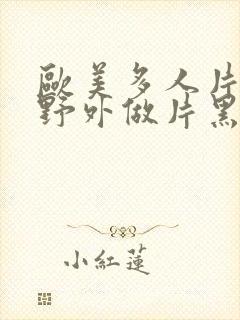 歐美多人片
野外做片黑
小紅蓮